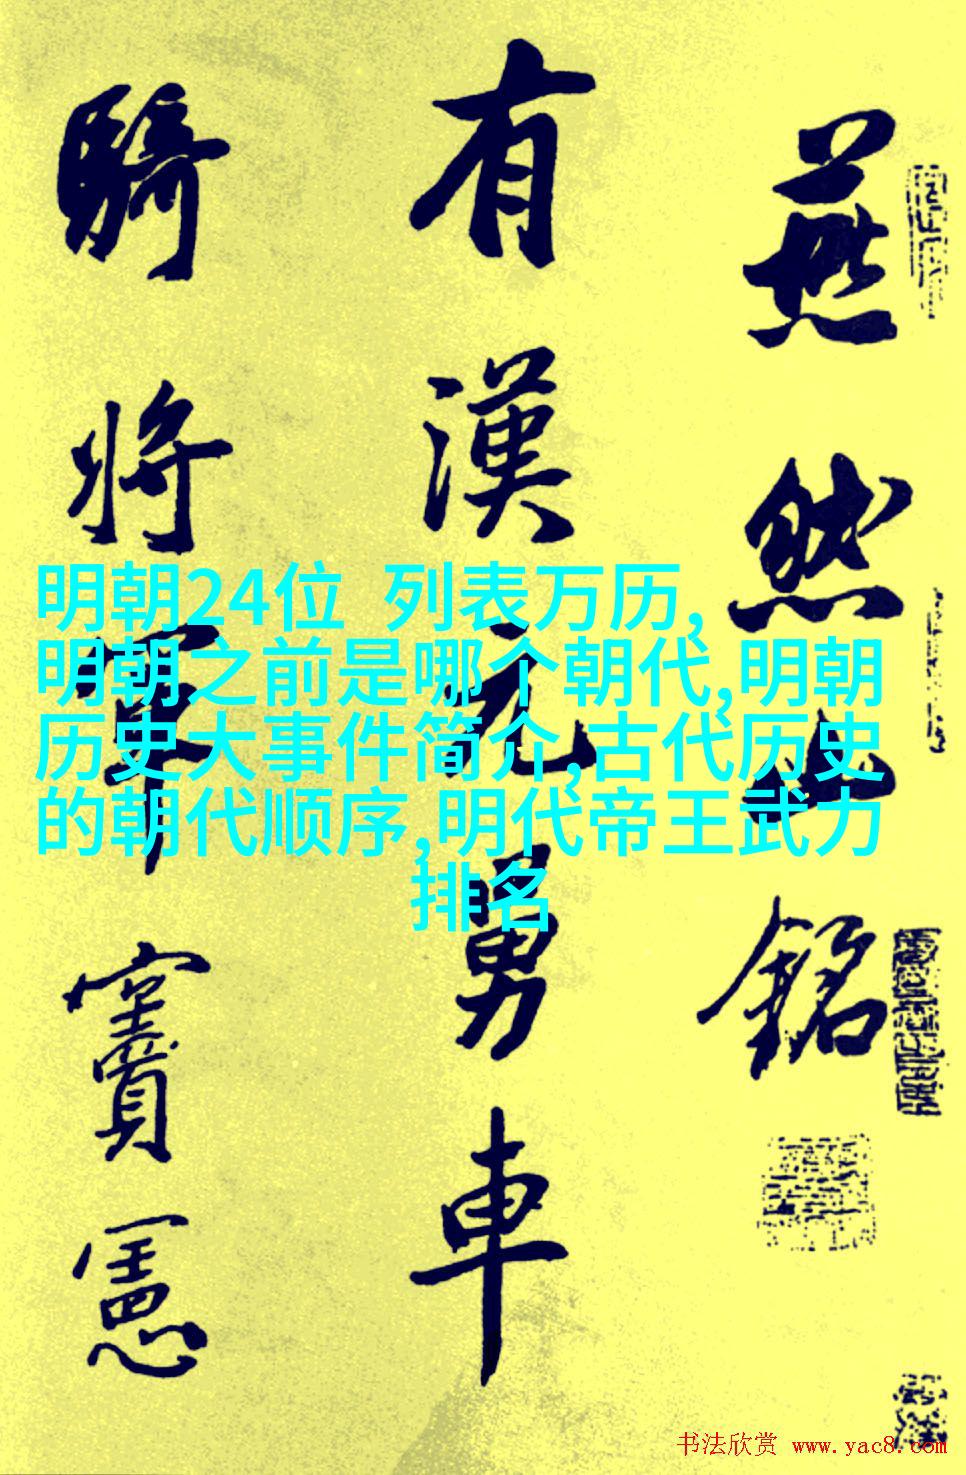 燕然山銘
有漢元舅車
騎將軍竇憲
明朝24位 列表万历,
明朝之前是哪个朝代,明朝
历史大事件简介,古代历史
的朝代顺序,明代帝王武力
排名
书法欣赏 www.yac8.com